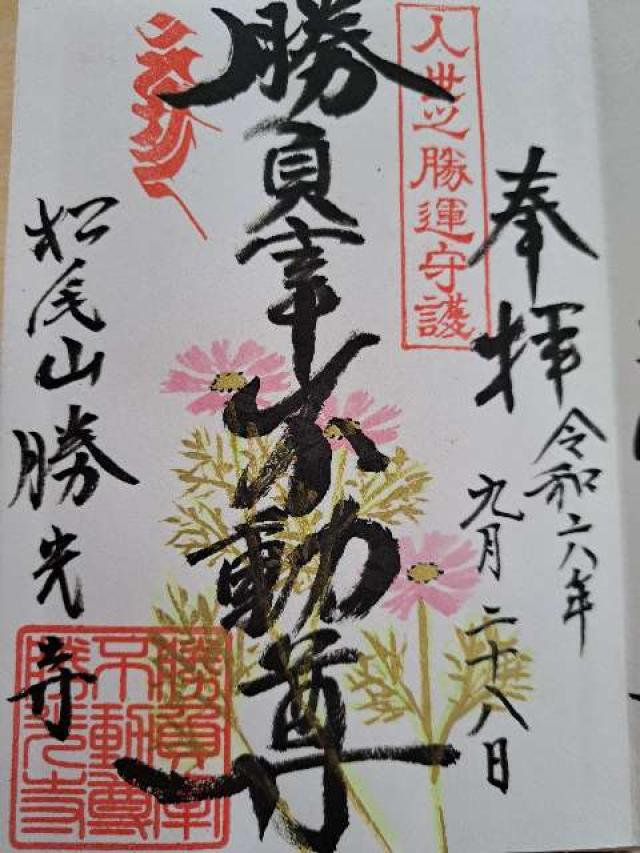 奉拝
令和六年
九月二十八日
人世之勝運守護
勝負幸不動尊
松尾山勝光寺
勝負幸
不動尊
勝光寺